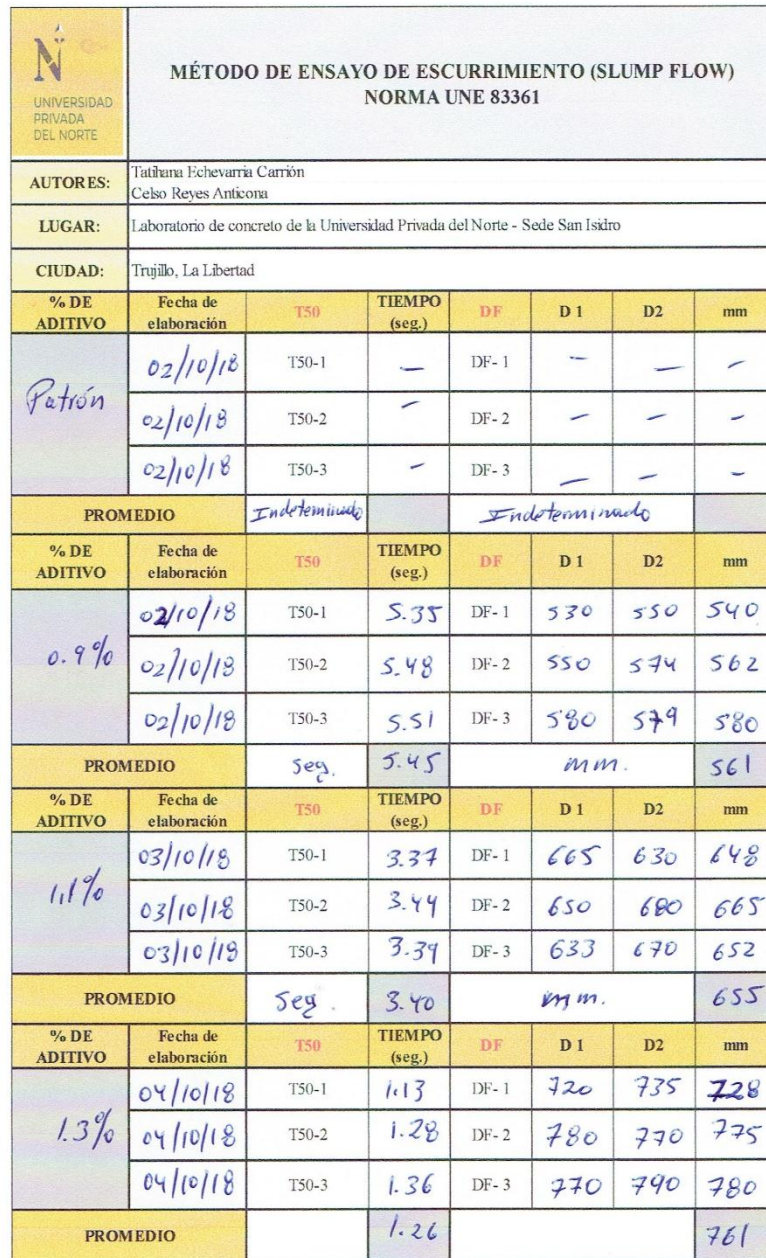 UNIVERSIDAD
PRIVADA
DEL NORTE
MÉTODO DE ENSAYO DE ESCURRIMIENTO (SLUMP FLOW)
NORMA UNE 83361
AUTORES: Tatihana Echevarria Carrión
Celso Reyes Anticona
LUGAR: Laboratorio de concreto de la Universidad Privada del Norte - Sede San Isidro
CIUDAD: Trujillo, La Libertad
% DE ADITIVO Fecha de elaboración T50 TIEMPO (seg.) DF D 1 D2 mm
Patrón 02/10/18 T50-1 — DF- 1 — — —
02/10/18 T50-2 — DF- 2 — — —
02/10/18 T50-3 — DF- 3 — — —
PROMEDIO Indeterminado Indeterminado
% DE ADITIVO Fecha de elaboración T50 TIEMPO (seg.) DF D 1 D2 mm
0.9% 02/10/18 T50-1 5.35 DF- 1 530 550 540
02/10/18 T50-2 5.48 DF- 2 550 574 562
02/10/18 T50-3 5.51 DF- 3 580 579 580
PROMEDIO Seg. 5.45 mm. 561
% DE ADITIVO Fecha de elaboración T50 TIEMPO (seg.) DF D 1 D2 mm
1,1% 03/10/18 T50-1 3.37 DF- 1 665 630 648
03/10/18 T50-2 3.44 DF- 2 650 680 665
03/10/18 T50-3 3.39 DF- 3 633 670 652
PROMEDIO Seg. 3.40 mm. 655
% DE ADITIVO Fecha de elaboración T50 TIEMPO (seg.) DF D 1 D2 mm
1.3% 04/10/18 T50-1 1.13 DF- 1 720 735 728
04/10/18 T50-2 1.28 DF- 2 780 770 775
04/10/18 T50-3 1.36 DF- 3 770 790 780
PROMEDIO 1.26 761